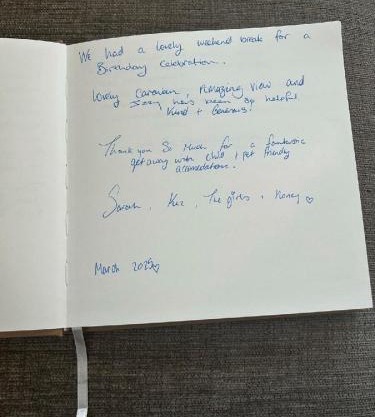 We had a lovely weekend break for a
Birthday celebration.
lovely Caravan, amazing view and
has been so helpful
Kind + Generous.
Thank you so much for a fantastic
getaway with child + pet friendly
accomodation.
Sarah, Kez, The girls + Honey ♡
March 2025♡